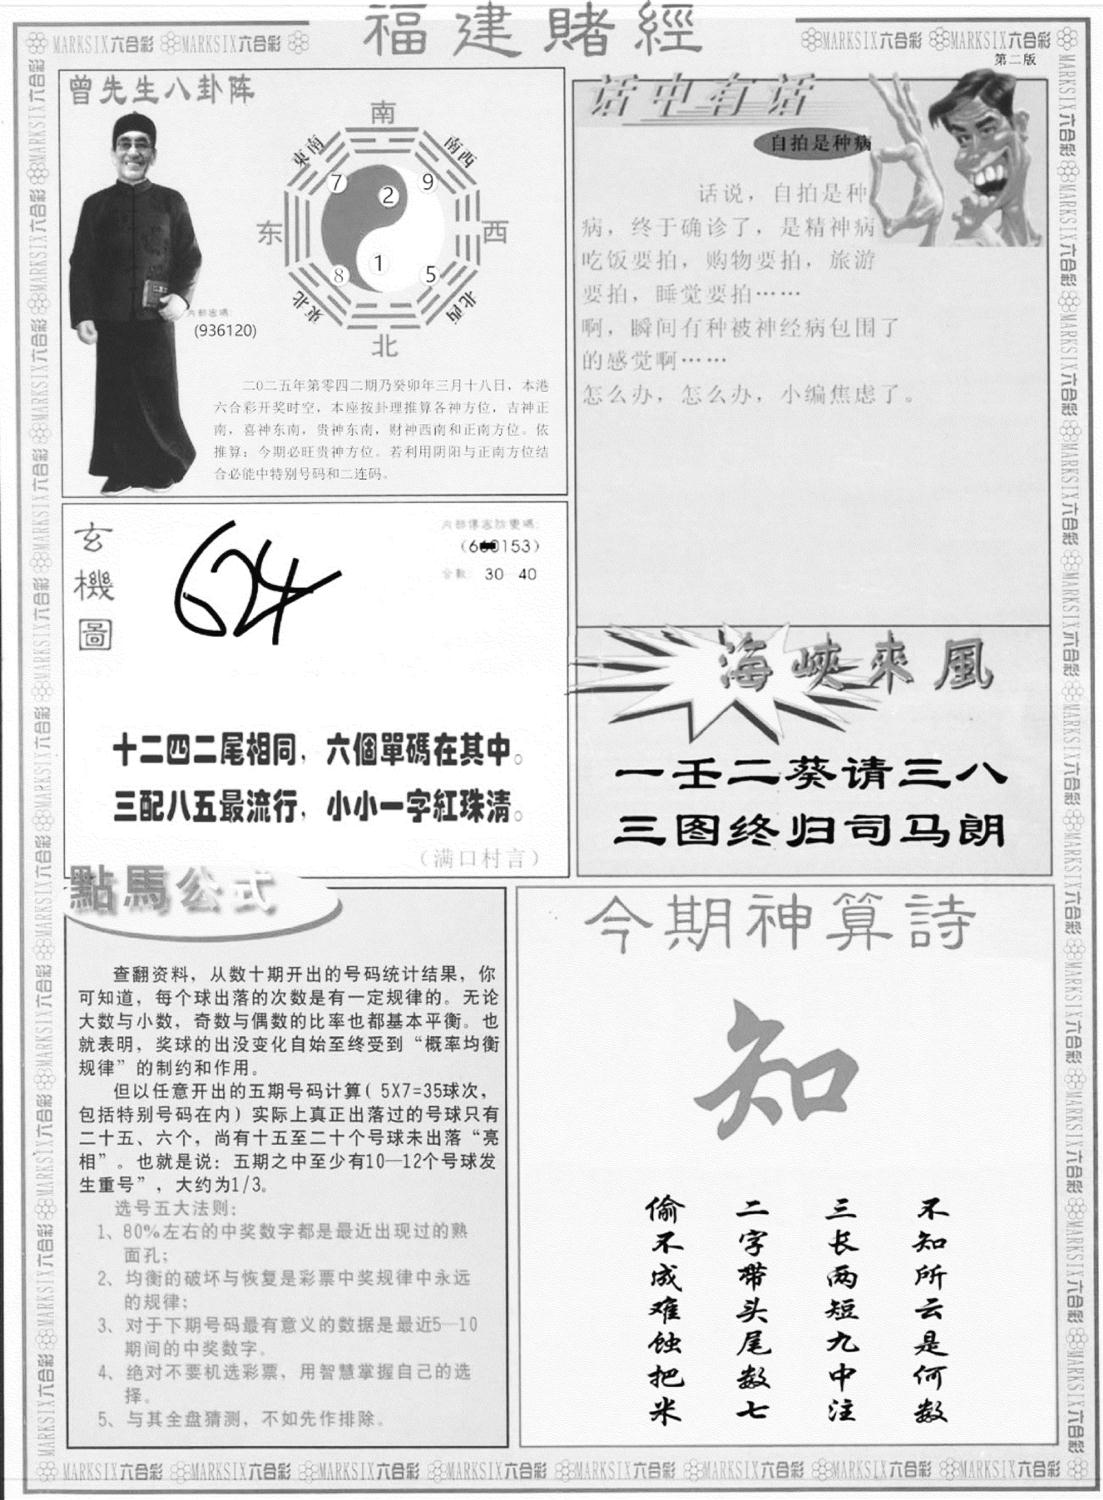 福建賭經
MARKSIX六合彩 MARKSIX六合彩
MARKSIX六合彩 MARKSIX六合彩
第二版
曾先生八卦阵
南
東南
南西
7
2
9
东
西
8
1
5
東北
北西
北
内部密碼:
(936120)
二O二五年第零四二期乃癸卯年三月十八日，本港
六合彩开奖时空，本座按卦理推算各神方位，吉神正
南，喜神东南，贵神东南，财神西南和正南方位。依
推算：今期必旺贵神方位。若利用阴阳与正南方位结
合必能中特别号码和二连码。
话中有话
自拍是种病
话说，自拍是种
病，终于确诊了，是精神病
吃饭要拍，购物要拍，旅游
要拍，睡觉要拍……
啊，瞬间有种被神经病包围了
的感觉啊……
怎么办，怎么办，小编焦虑了。
玄機圖
624
153)
合數: 30 40
十二四二尾相同，六個單碼在其中。
三配八五最流行，小小一字紅珠清。
（满口村言）
海峽來風
一壬二葵请三八
三图终归司马朗
點馬公式
查翻资料，从数十期开出的号码统计结果，你
可知道，每个球出落的次数是有一定规律的。无论
大数与小数，奇数与偶数的比率也都基本平衡。也
就表明，奖球的出没变化自始至终受到“概率均衡
规律”的制约和作用。
但以任意开出的五期号码计算( 5X7=35球次，
包括特别号码在内）实际上真正出落过的号球只有
二十五、六个，尚有十五至二十个号球未出落“亮
相”。也就是说：五期之中至少有10—12个号球发
生重号”，大约为1/3。
选号五大法则：
1、80%左右的中奖数字都是最近出现过的熟
面孔；
2、均衡的破坏与恢复是彩票中奖规律中永远
的规律；
3、对于下期号码最有意义的数据是最近5—10
期间的中奖数字。
4、绝对不要机选彩票，用智慧掌握自己的选
择。
5、与其全盘猜测，不如先作排除。
今期神算詩
知
不知所云是何数
三长两短九中注
二字带头尾数七
偷不成难蚀把米
MARKSIX六合彩 MARKSIX六合彩 MARKSIX六合彩 MARKSIX六合彩 MARKSIX六合彩 MARKSIX六合彩 MARKSIX六合彩 MARKSIX六合彩